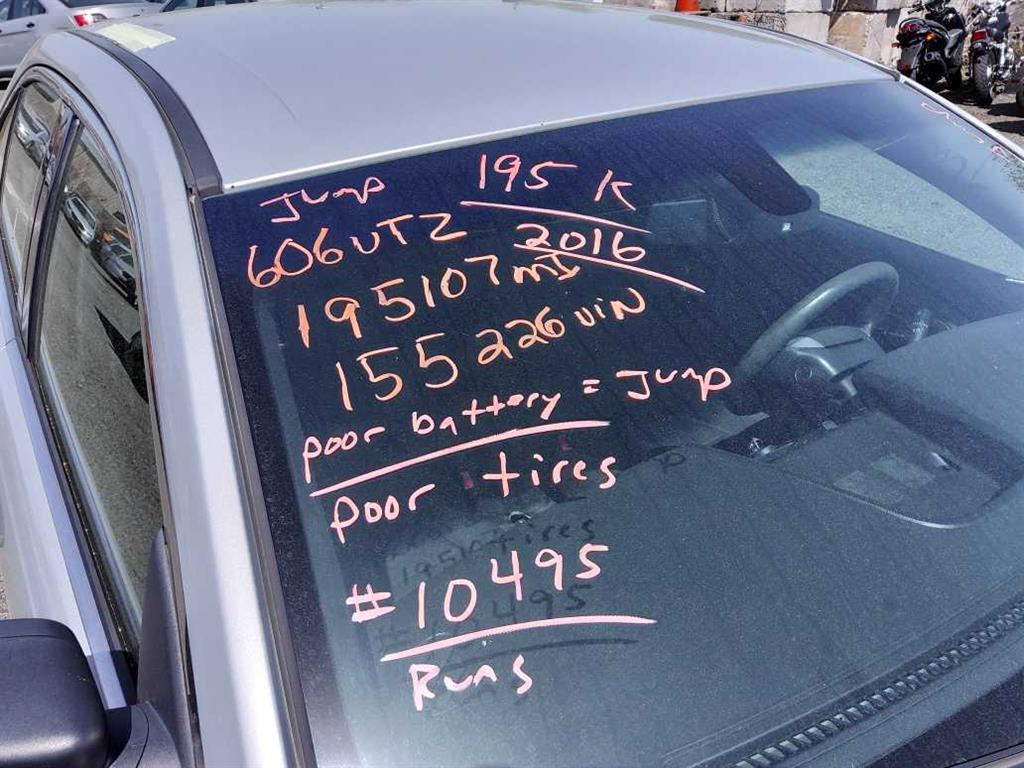 Jump 195 K
606UTZ 2016
195107 mI
155226 viN
poor battery = Jump
poor tires
#10495
Runs